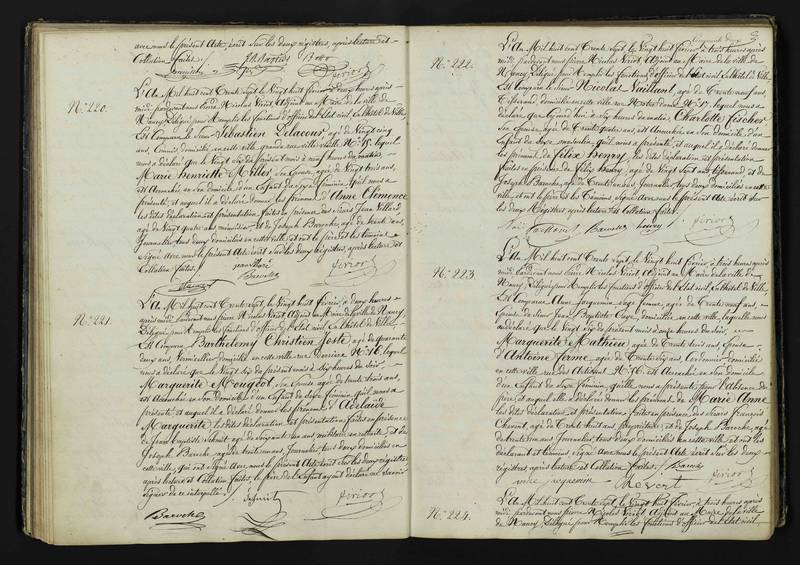 avec nous le présent Acte, écrit sur les deux registres, après lecture et
Collation faites.
N.º 220.
L'An Mil huit cent Trente Sept, le Vingt huit février, à deux heures après
midi, pardevant nous Pierre Nicolas Vériot, Adjoint au Maire de la ville de
Nancy, Délégué pour Remplir les fonctions d'officier de l'Etat civil, En l'hôtel de Ville,
Est Comparu le Sieur Sébastien Delacour, âgé de Vingt cinq
ans, Commis, domicilié en cette ville, grande rue ville vieille N.º 15, lequel
nous a déclaré que le Vingt six du présent mois à neuf heures du matin,
Marie henriette Miller, Son Epouse, âgée de Vingt trois ans,
est Accouchée en Son domicile d'un Enfant du Sexe féminin, qu'il nous a
présenté, et auquel il a déclaré donner les prénoms d'Anne Clémence
les dites déclaration et présentation faites en présence des Sieurs Jean
âgé de Vingt quatre ans, et de Joseph Baroche, âgé de trente ans,
Journalier, tous deux domiciliés en cette ville, et ont le père et les témoins
Signé avec nous le présent Acte écrit sur les deux registres, après lecture et
Collation faites.
Baroche
N.º 221.
L'An Mil huit cent Trente Sept, le Vingt huit février, à deux heures
après midi, pardevant nous Pierre Nicolas Vériot, Adjoint au Maire de la ville de Nancy,
Délégué pour Remplir les fonctions d'officier de l'Etat civil, En l'hôtel de Ville,
Est Comparu Barthelemy Christien Joste, âgé de quarante
deux ans, Vermicellier, domicilié en cette ville, rue derrière N.º 16, lequel
nous a déclaré que le Vingt six du présent mois à dix heures du soir,
Marguerite Mougeot, Son Epouse, âgée de trente trois ans,
est Accouchée en Son domicile d'un Enfant du Sexe féminin, qu'il nous a
présenté, et auquel il a déclaré donner les prénoms d'Adelaïde
Marguerite, les dites déclaration et présentation faites en présence
de Jean Schmit, âgé de soixante un ans, militaire en retraite, et de
Joseph Baroche, âgé de trente ans, Journalier, tous deux domiciliés en
cette ville, qui ont signé avec nous le présent Acte écrit sur les deux registres
après lecture et Collation faites, le père de l'Enfant ayant déclaré ne savoir
signer de ce interpellé.
Schmit
Baroche
N.º 222.
L'An Mil huit cent Trente Sept, le Vingt huit février, à trois heures après
midi, pardevant nous Pierre Nicolas Vériot, Adjoint au Maire de la ville de
Nancy, Délégué pour Remplir les fonctions d'officier de l'Etat civil, En l'hôtel de Ville,
Est Comparu le Sieur Nicolas Vaillant, âgé de Trente neuf ans,
Tisserand, domicilié en cette ville rue Notre Dame N.º 17, lequel nous a
déclaré que Aujourd'hui à six heures du matin, Charlotte fischer
Son Epouse, âgée de Trente quatre ans, est Accouchée en Son domicile, d'un
Enfant du Sexe masculin, qu'il nous a présenté, et auquel il a déclaré donner
les prénoms de félix henry, les dites déclaration et présentation
faites en présence de félix henry, âgé de Vingt Sept ans, Tisserand, et de
Joseph Baroche, âgé de Trente ans, Journalier, tous deux domiciliés en cette
ville, et ont le père et les témoins Signé avec nous le présent Acte écrit sur
les deux Registres, après lecture et Collation faites.
Baroche henry
N.º 223.
L'An Mil huit cent Trente Sept, le Vingt huit février, à trois heures après
midi, pardevant nous Pierre Nicolas Vériot, Adjoint au Maire de la ville de
Nancy, Délégué pour Remplir les fonctions d'officier de l'Etat civil, En l'hôtel de Ville,
Est Comparue Anne Jacquemin, Sage femme, âgée de Trente neuf ans,
Epouse du Sieur Jean Baptiste, domiciliée en cette ville, laquelle nous
a déclaré que le Vingt six du présent mois à onze heures du soir,
Marguerite Mathieu, âgée de Trente trois ans, Epouse
d'Antoine ferme, âgé de Trente six ans, Cordonnier, domicilié
en cette ville, rue des Artisans N.º 56, est Accouchée en Son domicile
d'un Enfant du Sexe féminin, qu'elle nous a présenté, pour l'absence du
père, et auquel elle a déclaré donner les prénoms de Marie Anne
les dites déclaration et présentation faites en présence, des Sieurs François
Chevert, âgé de Trente huit ans, propriétaire, et de Joseph Baroche, âgé
de trente ans, Journalier, tous deux domiciliés en cette ville, et ont les
déclarante et témoins, signé avec nous le présent Acte écrit sur les deux
registres, après lecture et Collation faites.
Baroche
N.º 224.
L'An Mil huit cent Trente Sept, le Vingt huit février, à trois heures après
midi, pardevant nous Pierre Nicolas Vériot, Adjoint au Maire de la ville
de Nancy, Délégué pour Remplir les fonctions d'officier de l'Etat civil,